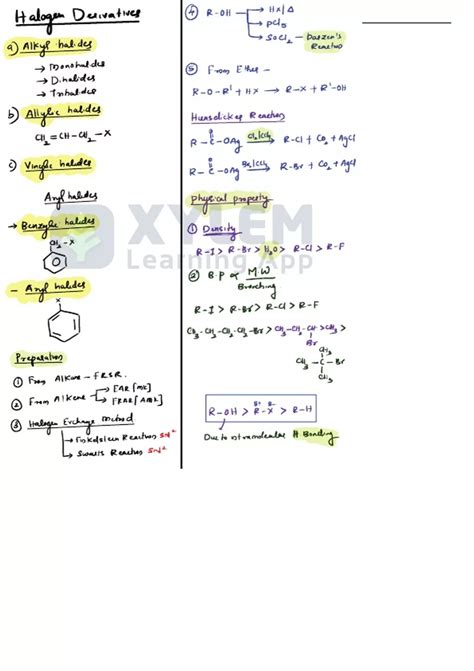 Halogen Derivatives
a) Alkyl halides
→ Monohalides
→ Dihalides
→ Trihalides
b) Allylic halides
CH2=CH-CH2-X
c) Vinylic halides
Aryl halides
→ Benzylic halides
CH2-X
- Aryl halides
X
Preparation
① From Alkane - FRSR.
② From Alkene
→ EAR [MK]
→ FRAR [AMK]
③ Halogen Exchange method
→ Finkelstein Reaction SN2
→ Swarts Reaction SN2
④ R-OH
→ HX/Δ
→ PCl5
→ SOCl2 - Darzen's Reaction
⑤ From Ether -
R-O-R' + HX → R-X + R'-OH
Hunsdicker Reaction
R-C-OAg Cl2/CCl4 R-Cl + CO2 + AgCl
O
R-C-OAg Br2/CCl4 R-Br + CO2 + AgCl
O
Physical property
① Density
R-I > R-Br > H2O > R-Cl > R-F
② B.P α M.W
Branching
R-I > R-Br > R-Cl > R-F
CH3-CH2-CH2-CH2-Br > CH3-CH2-CH-CH3 >
Br
CH3
CH3-C-Br
CH3
R-OH > R-X > R-H
δ+ δ-
Due to intramolecular H Bonding
XYLEM
Learning App